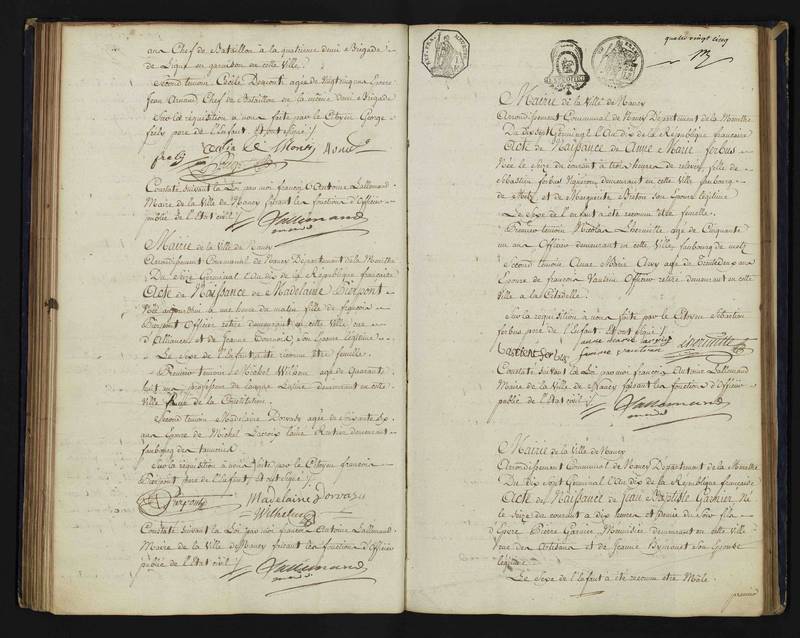 aux Chef de Bataillon à la quatrieme demi Brigade
de Ligne en garnison en cette Ville.
Second temoin Cécile agée de Vingt cinq ans Epouse
Jean Arnaud Chef de Bataillon de la même demi Brigade
Sur la réquisition à nous faite par le Citoyen George
pere de l'Enfant. Et ont signé /
Constaté suivant la Loi par moi françois Antoine Lallemand.
Maire de la Ville de Nancy faisant les fonctions d'Officier
public de l'Etat civil /
Lallemand
maire
Mairie de la Ville de Nancy
Arrondissement Communal de Nancy Département de la Meurthe
Du Seize Germinal L'an dix de la République française
Acte de Naissance de Madelaine Pierpont
Née aujourd'hui à une heure du matin fille de françois
Pierpont Officier retiré demeurant en cette Ville rue
d'Alliance et de Jeanne son Epouse légitime
Le Sexe de l'Enfant a été reconnu être femelle.
Premier temoin Michel Wilhelm agé de Quarante
huit ans professeur de Langue Latine demeurant en cette
Ville Rue de la Constitution.
Second temoin Madelaine Dorvasy agée de Soixante dix
ans Epouse de Michel Lacroix Rentier demeurant
faubourg des tanneries
Sur la réquisition à nous faite par le Citoyen françois
Pierpont pere de l'Enfant, Et ont signé /
Pierpont Madelaine Dorvasy
Wilhelm
Constaté suivant la Loi par moi françois Antoine Lallemand.
Maire de la Ville de Nancy faisant les fonctions d'Officier
public de l'Etat civil /
Lallemand
maire
quatre vingt cinq
Mairie de la Ville de Nancy
Arrondissement Communal de Nancy Département de la Meurthe
Du Dix Sept Germinal L'An dix de la République française
Acte de Naissance de Anne Marie forbus
Née le Seize du courant à trois heures de relevée, fille de
Sébastien forbus Vigneron demeurant en cette Ville faubourg
de Metz et de Marguerite Breton son Epouse légitime
Le Sexe de l'enfant a été reconnu être femelle.
Premier temoin Nicolas agé de Cinquante
un ans Officier demeurant en cette Ville faubourg de Metz
Second temoin Anne Marie agée de Trente deux ans
Epouse de françois Officier retiré demeurant en cette
Ville à la Citadelle.
Sur la réquisition à nous faite par le Citoyen Sébastien
forbus pere de l'Enfant. Et ont signé /
Constaté suivant la Loi par moi françois Antoine Lallemand
Maire de la Ville de Nancy faisant les fonctions d'Officier
public de l'Etat civil /
Lallemand
maire
Mairie de la Ville de Nancy
Arrondissement Communal de Nancy Département de la Meurthe
Du dix Sept Germinal L'an dix de la République française
Acte de Naissance de Jean Baptiste Garnier Né
le Seize du courant à dix heures et demie du Soir fils
d'Epvre Pierre Garnier Menuisier demeurant en cette Ville
rue des Artisans et de Jeanne son Epouse
légitime
Le Sexe de l'Enfant a été reconnu être Mâle.
premier